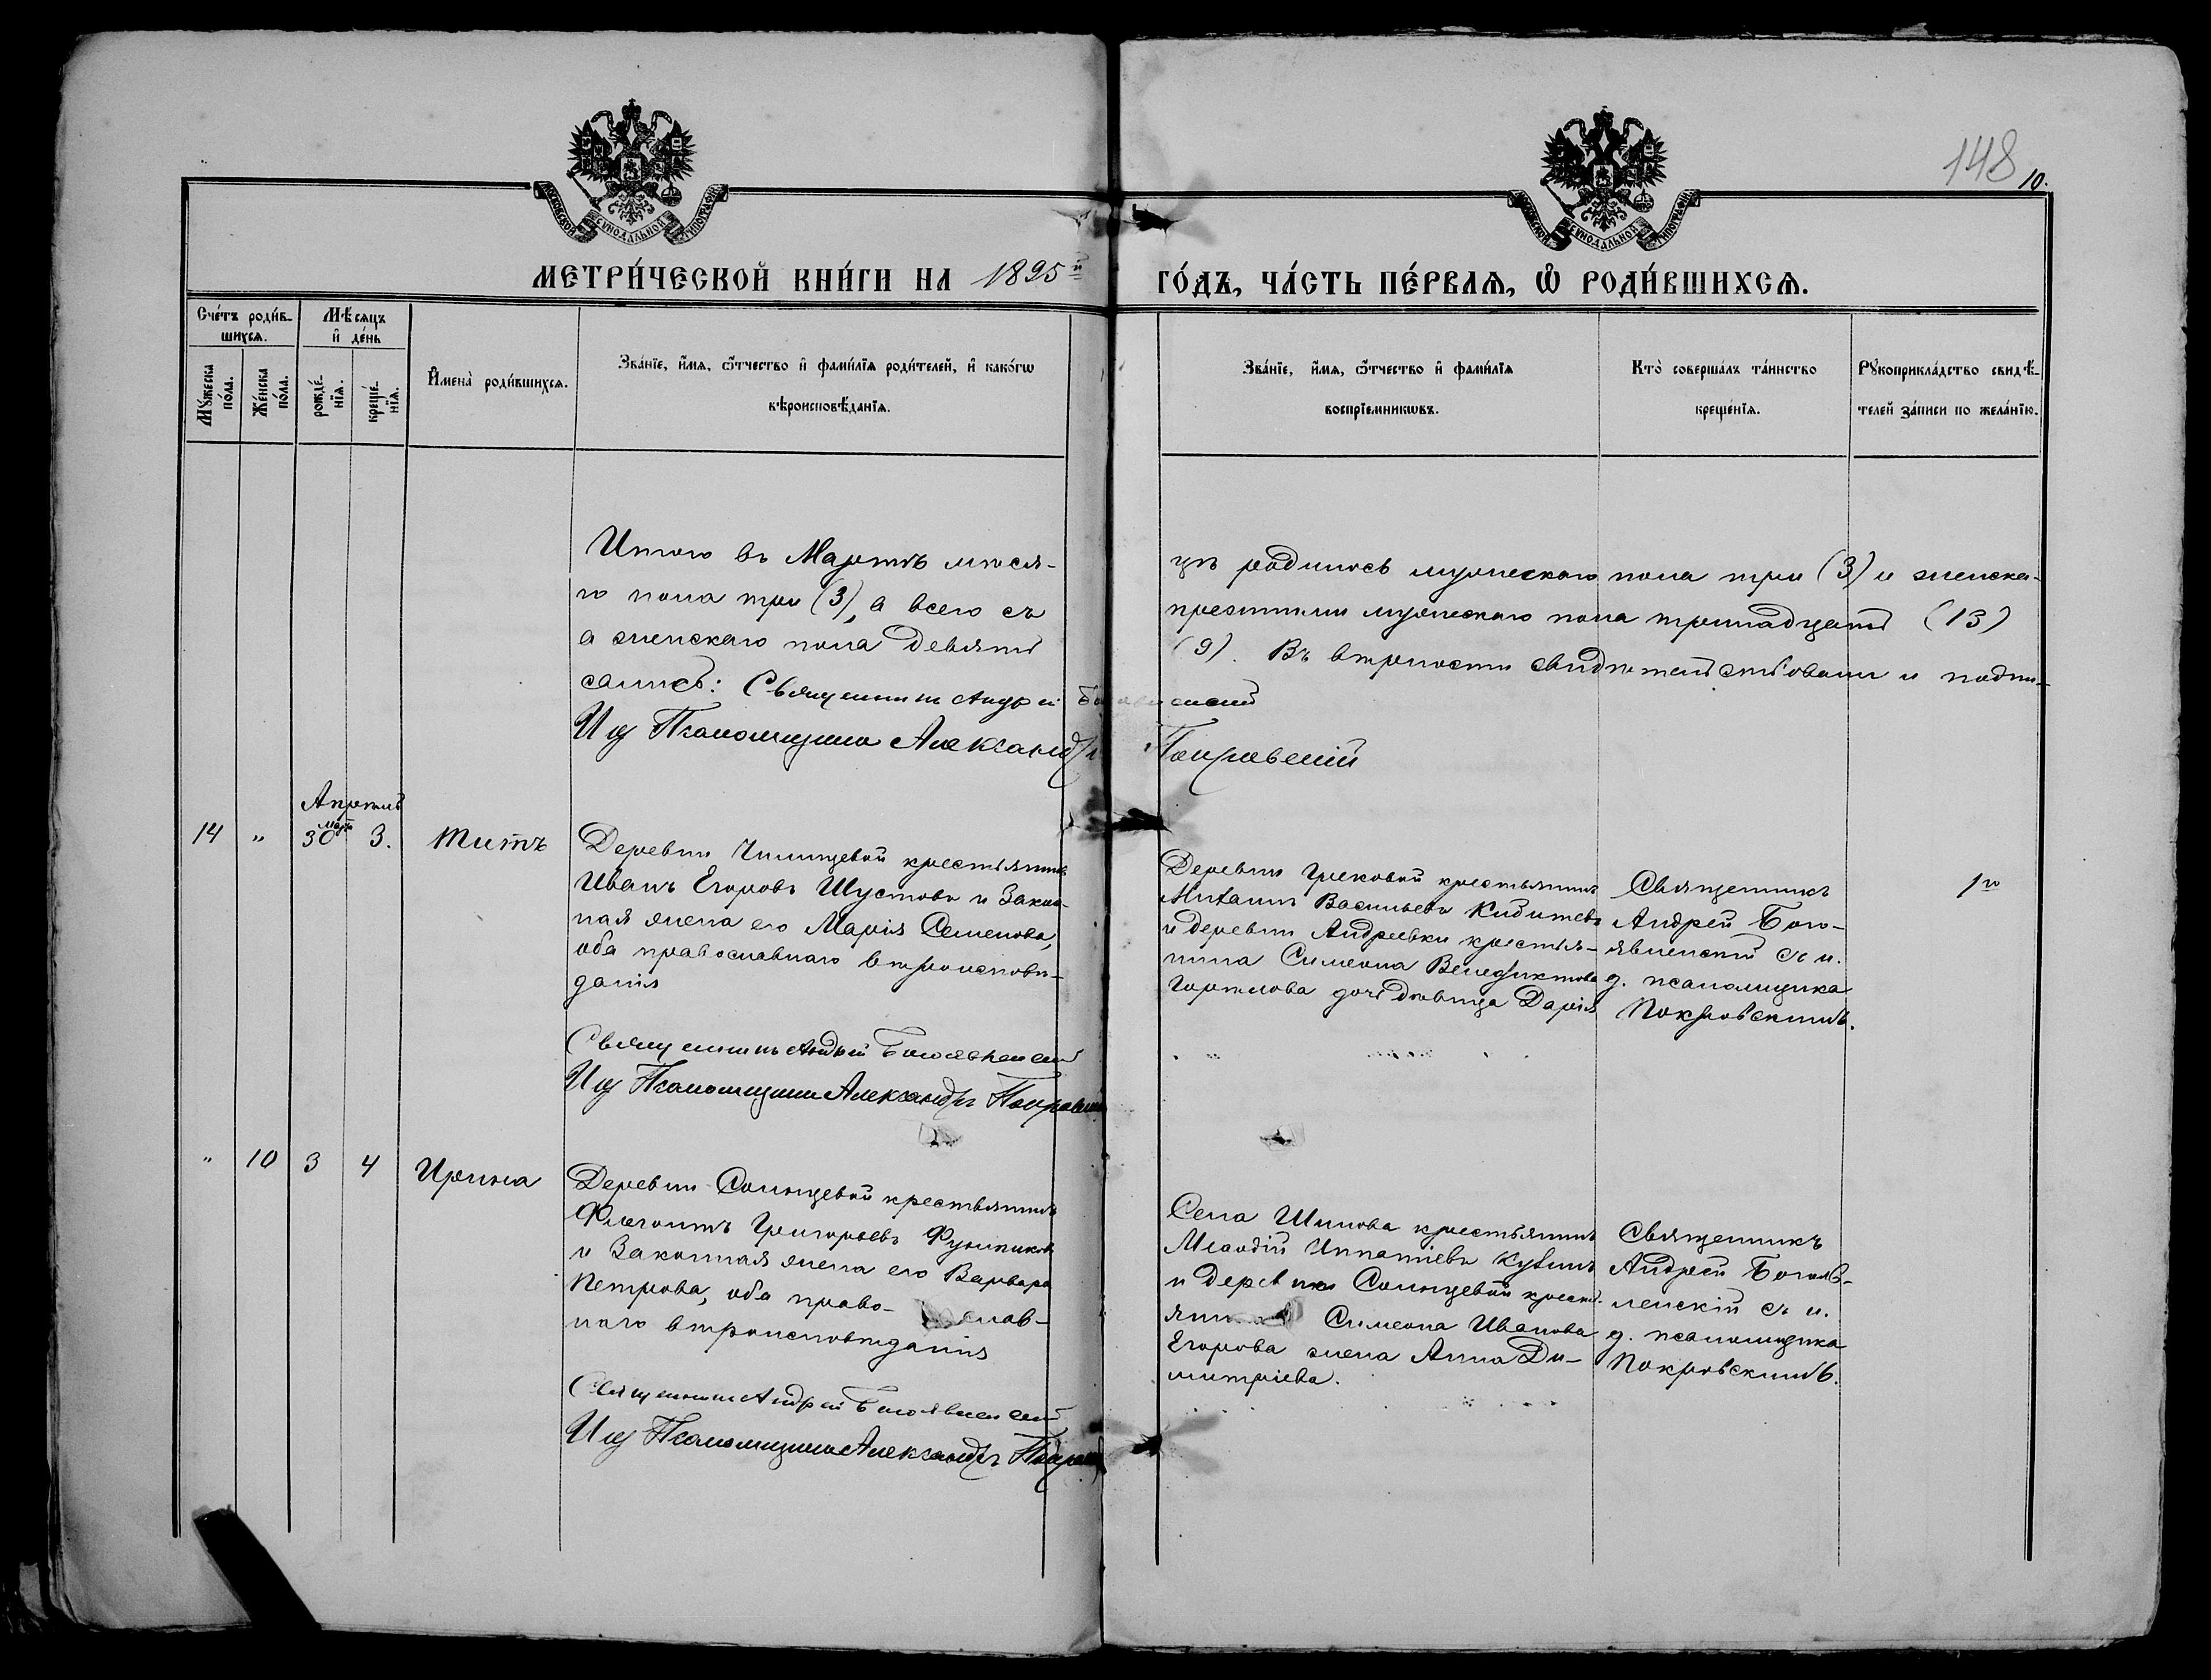 148
10.
МОСКОВСКОЙ СѴНОДАЛЬНОЙ ТИПОГРАФІИ
СѴНОДАЛЬНОЙ ТИПОГРАФІИ
МЕТРИ́ЧЕСКОЙ КНИ́ГИ НА 1895й ГО́ДЪ, ЧА́СТЬ ПЕ́РВАѦ, Ѽ РОДИ́ВШИХСѦ.
Сче́тъ роди́в-
шихсѧ.
Мѣ́сѧцъ
и҆ де́нь
Мꙋ́жеска
по́ла.
Же́нска
по́ла.
рожде́-
нїѧ.
креще́-
нїѧ.
И҆мена̀ роди́вшихсѧ.
Зва́нїе, и҆́мѧ, ѻ҆́тчество и҆ фами́лїѧ роди́телей, и҆ како́гѡ
вѣроисповѣ́данїѧ.
Зва́нїе, и҆́мѧ, ѻ҆́тчество и҆ фами́лїѧ
воспрїе́мникѡвъ.
Кто̀ соверша́лъ та́инство
креще́нїѧ.
Рꙋкоприкла́дство свидѣ́-
телей за́писи по жела́нїю.
Итого въ Мартѣ мѣся-
цѣ родилось мужескаго пола три (3) и женска-
го пола три (3), а всего съ
прежними мужескаго пола тринадцать (13)
а женскаго пола девять
(9). Въ вѣрности свидѣтельствовали и подпи-
сались: Священникъ Андрей Богоявленскій
И д Псаломщика Александръ Покровскій
Апрѣль
14 " 30 Мар. 3. Титъ
Деревни Чилищевой крестьянинъ
Иванъ Егоровъ Шустовъ и закон-
ная жена его Марія Семенова,
оба православнаго вѣроисповѣ-
данія
Священникъ Андрей Богоявленскій
И д Псаломщика Александръ Покровскій
Деревни Грековой крестьянинъ
Михаилъ Васильевъ Кибишевъ
и деревни Андреевки крестья-
нина Симеона Венедиктова
Горшова дочь дѣвица Дарія
Священникъ
Андрей Бого-
явленскій съ и.
д. псаломщика
Покровскимъ.
" 10 3 4 Ирина
Деревни Солнцевой крестьянинъ
Флегонтъ Григорьевъ Фунтиковъ
и законная жена его Варвара
Петрова, оба право- слав-
наго вѣроисповѣданія
Священникъ Андрей Богоявленскій
И д Псаломщика Александръ Покровскій
Села Шилова крестьянинъ
Меѳодій Ипатіевъ Кубинъ
и деревни Солнцевой крест-
Симеона Иванова
Егорова жена Анна Ди-
митріева.
Священникъ
Андрей Богояв-
ленскій съ и.
д. псаломщика
Покровскимъ.